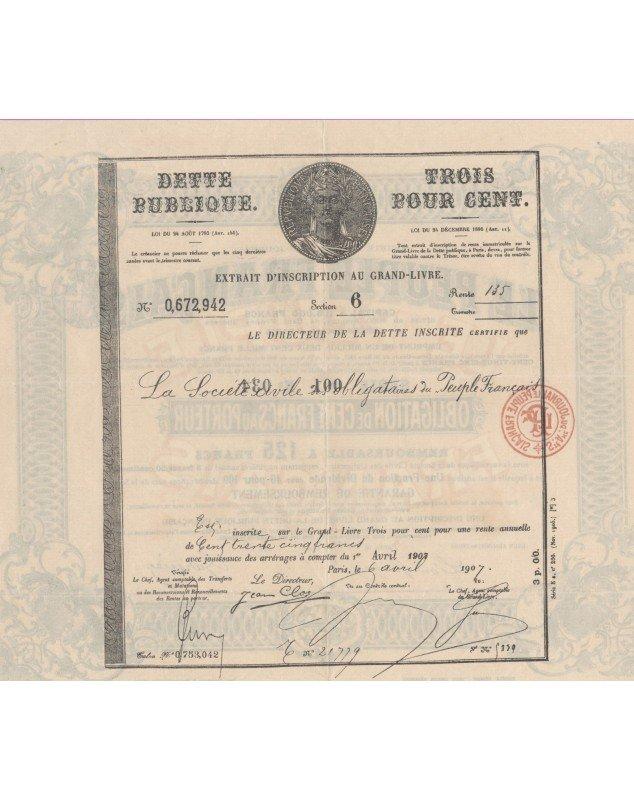 DETTE
PUBLIQUE.
TROIS
POUR CENT.
LOI DU 24 AOÛT 1793 (Art. 156).
LOI DU 24 DÉCEMBRE 1896 (Art. 11).
Le créancier ne pourra réclamer que les cinq dernières
années avant le trimestre courant.
Tout extrait d'inscription de rente immatriculée sur le
Grand-Livre de la Dette publique, à Paris, devra, pour former
titre valable contre le Trésor, être revêtu du visa du contrôle.
EXTRAIT D'INSCRIPTION AU GRAND-LIVRE.
N° 0,672,942
Section 6
Rente 135
LE DIRECTEUR DE LA DETTE INSCRITE CERTIFIE que
430
100
La Société civile des obligataires du Peuple Français
OBLIGATION DE CENT FRANCS AU PORTEUR
REMBOURSABLE À 125 FRANCS
GARANTIE DE REMBOURSEMENT
Est inscrite sur le Grand-Livre Trois pour cent pour une rente annuelle
de Cent trente cinq francs
avec jouissance des arrérages à compter du 1er Avril 1907
Paris, le 6 avril 1907.
Le Chef, Agent comptable des Transferts
et Mutations
ou des Reconversions et Renouvellements
des Rentes au porteur,
Le Directeur,
Vu au Contrôle central:
Le Chef, Agent comptable
du Grand-Livre,
Talon N° 0,753,042
T N° 21779
3 p. 00.